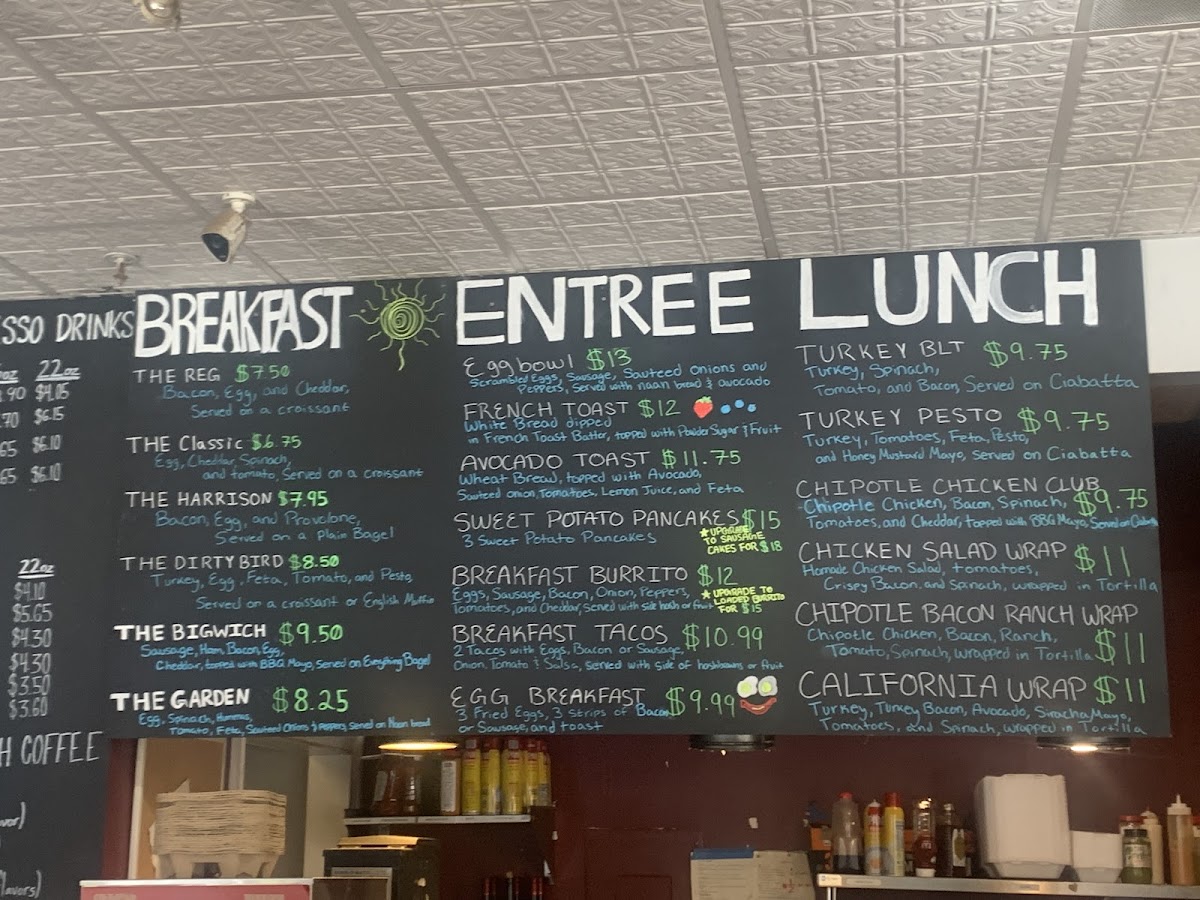 SSO DRINKS
oz 22oz
.90 $4.05
.70 $6.15
.65 $6.10
.65 $6.10
22oz
$4.10
$5.65
$4.30
$4.30
$3.50
$3.60
H COFFEE
vor)
lavors)
BREAKFAST
THE REG $7.50
Bacon, Egg, and Cheddar,
Served on a croissant
THE Classic $6.75
Egg, Cheddar, Spinach,
and tomato, Served on a croissant
THE HARRISON $7.95
Bacon, Egg, and Provolone,
Served on a Plain Bagel
THE DIRTY BIRD $8.50
Turkey, Egg, Feta, Tomato, and Pesto,
Served on a croissant or English Muffin
THE BIGWICH $9.50
Sausage, Ham, Bacon, Egg,
Cheddar, topped with BBQ Mayo, Served on Everything Bagel
THE GARDEN $8.25
Egg, Spinach, Hummus,
Tomato, Feta, Sauteed Onions & peppers, Served on Naan bread
ENTREE
Egg bowl $13
Scrambled Eggs, Sausage, Sauteed onions and
Peppers, Served with naan bread & avocado
FRENCH TOAST $12
White Bread dipped
in French Toast Batter, topped with Powder Sugar & Fruit
AVOCADO TOAST $11.75
Wheat Bread, topped with Avocado,
Sauteed onion, Tomatoes, Lemon Juice, and Feta
SWEET POTATO PANCAKES $15
3 Sweet Potato Pancakes
*UPGRADE
TO SAUSAGE
CAKES FOR $18
BREAKFAST BURRITO $12
Eggs, Sausage, Bacon, Onion, Peppers,
Tomatoes, and Cheddar, Served with side hash or fruit
*UPGRADE TO
LOADED BURRITO
FOR $15
BREAKFAST TACOS $10.99
2 Tacos with Eggs, Bacon or Sausage,
Onion, Tomato & Salsa, served with side of hashbrowns or fruit
EGG BREAKFAST $9.99
3 Fried Eggs, 3 strips of Bacon
or Sausage, and toast
LUNCH
TURKEY BLT $9.75
Turkey, Spinach,
Tomato, and Bacon, Served on Ciabatta
TURKEY PESTO $9.75
Turkey, Tomatoes, Feta, Pesto,
and Honey Mustard Mayo, Served on Ciabatta
CHIPOTLE CHICKEN CLUB $9.75
Chipotle Chicken, Bacon, Spinach,
Tomatoes, and Cheddar, topped with BBQ Mayo, Served on Ciabatta
CHICKEN SALAD WRAP $11
Homade Chicken Salad, tomatoes,
Crispy Bacon, and Spinach, wrapped in Tortilla
CHIPOTLE BACON RANCH WRAP $11
Chipotle Chicken, Bacon, Ranch,
Tomato, Spinach, wrapped in Tortilla
CALIFORNIA WRAP $11
Turkey, Turkey Bacon, Avocado, Siracha Mayo,
Tomatoes, and Spinach, wrapped in Tortilla